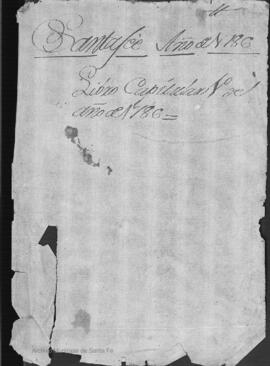 Santa Fee Año de 1786
Libro Capitular del
año de 1786=
Archivo General de Santa Fe